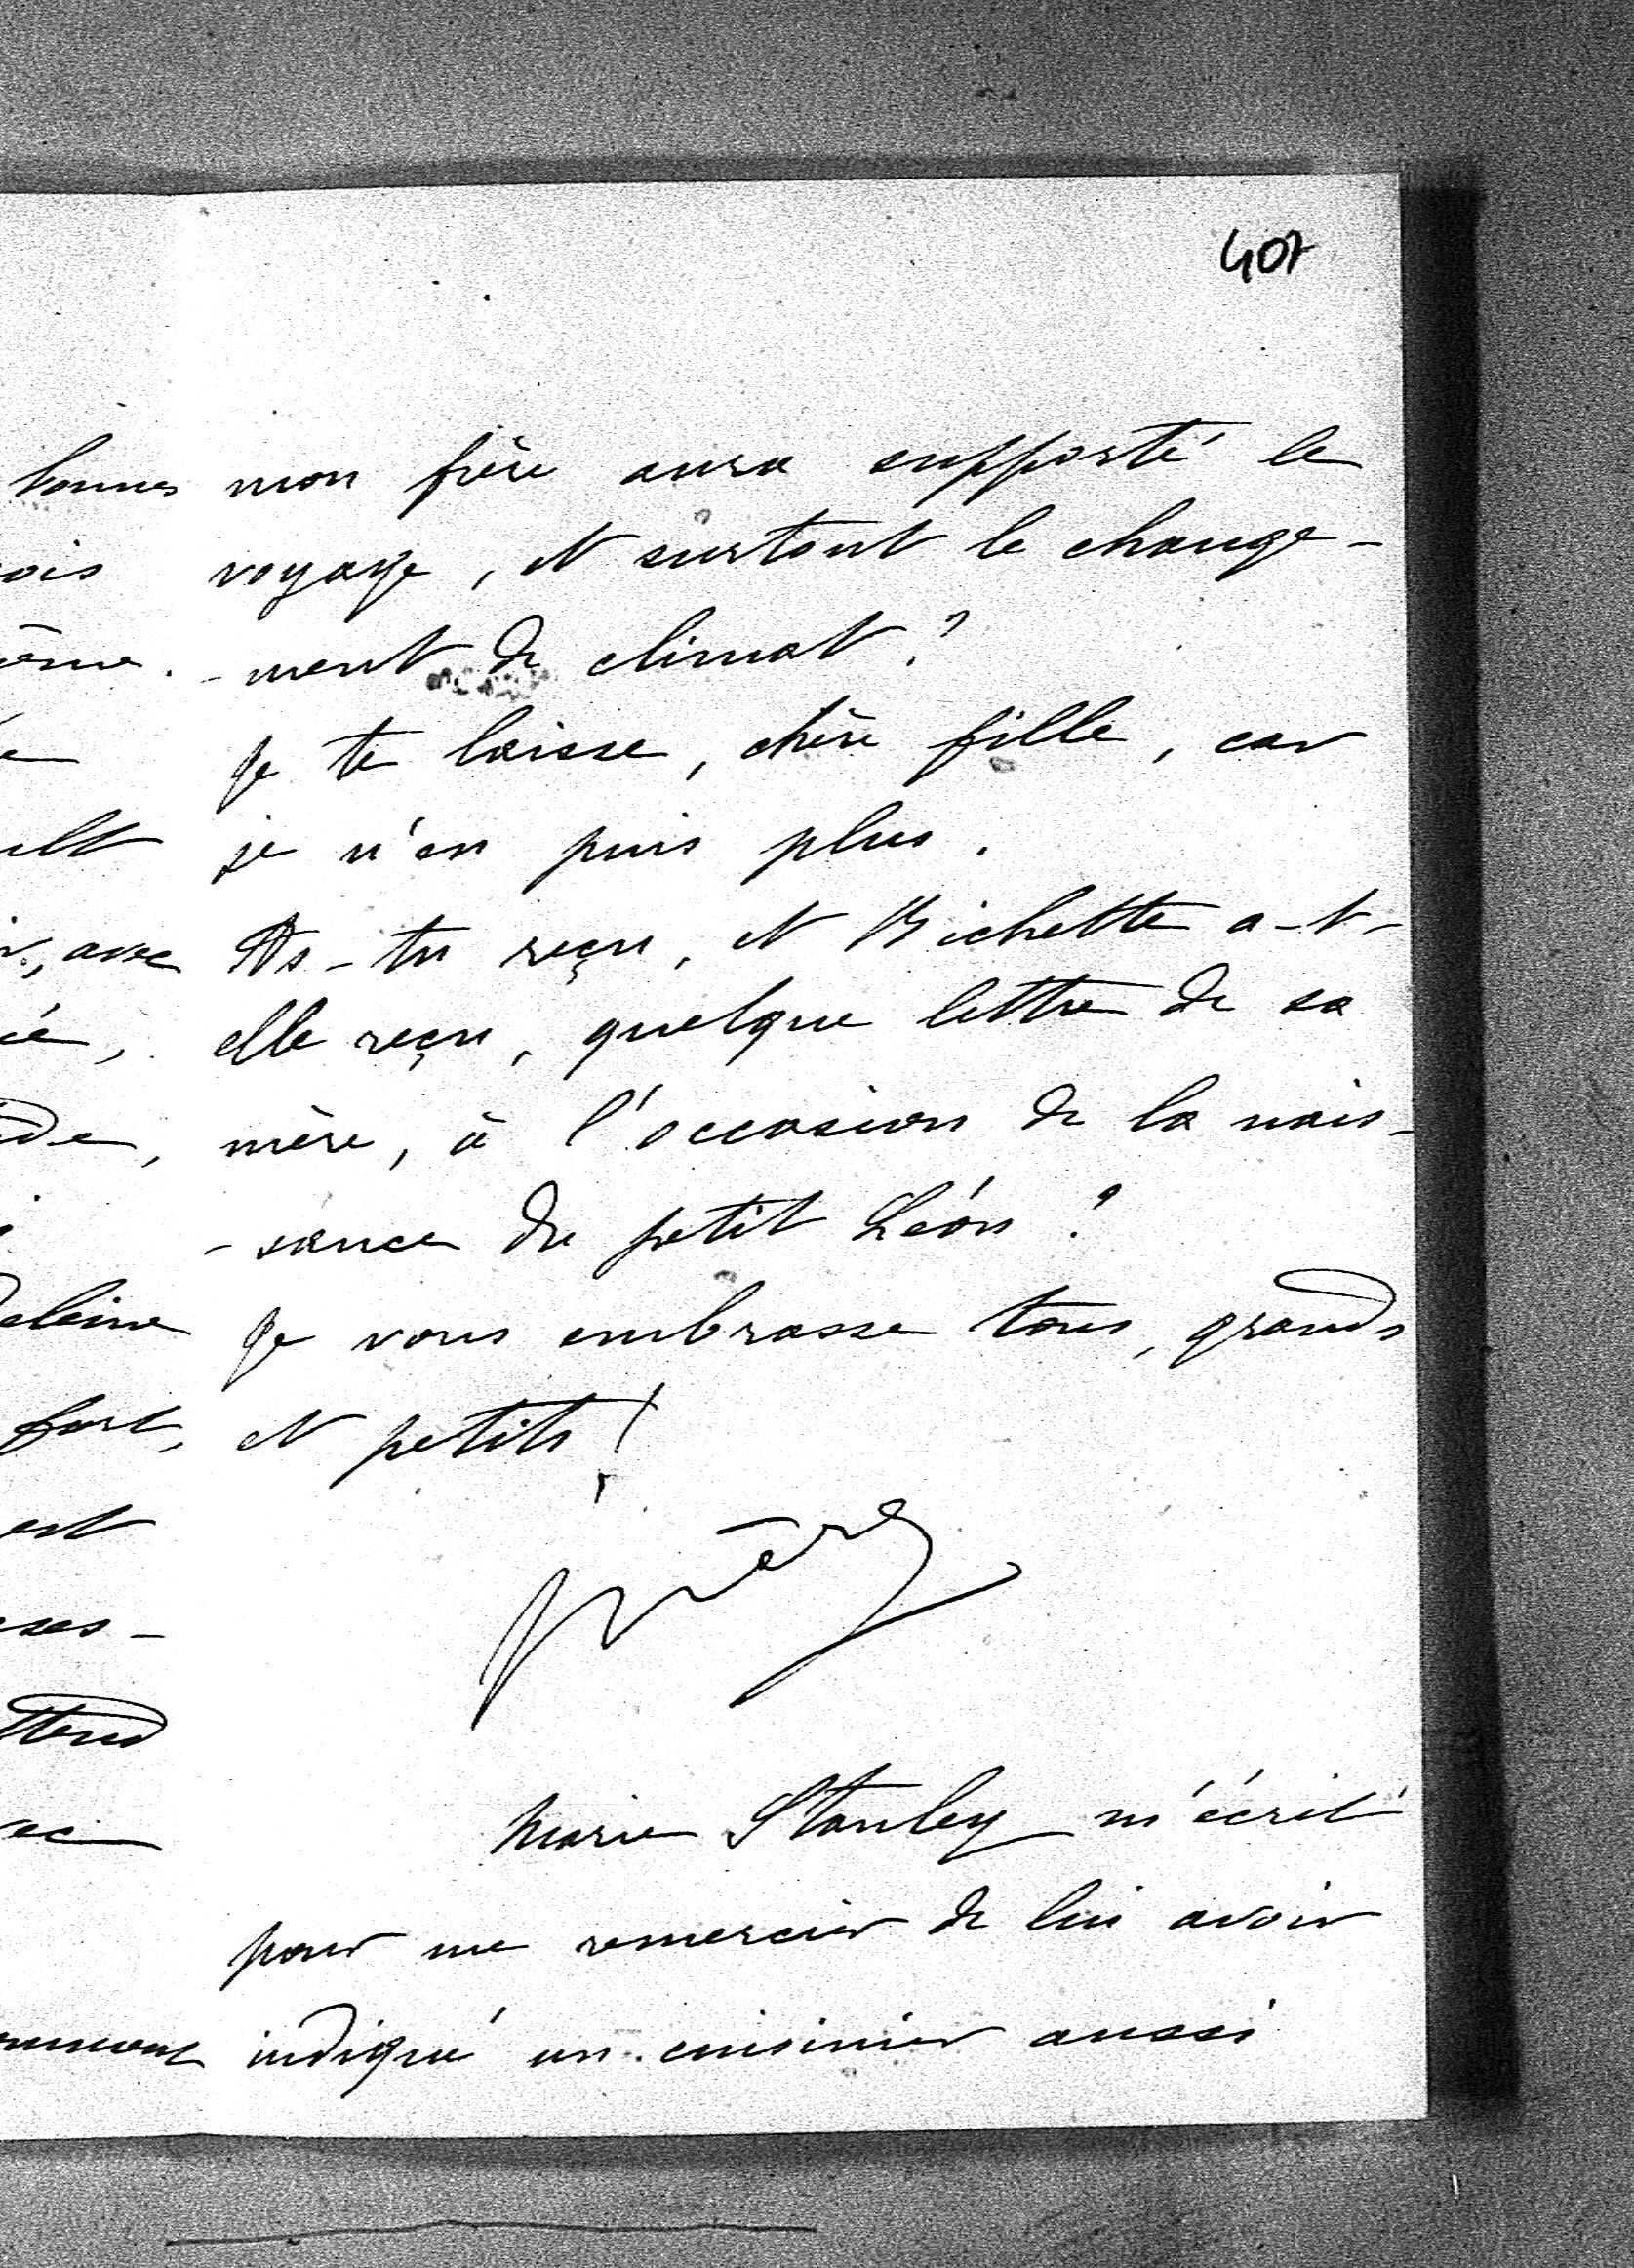 407
mon frère aura supporté le
voyage, et surtout le change-
-ment de climat ?
Je te laisse, chère fille, car
je n'en puis plus.
As-tu reçu, et Bichette a-t-
elle reçu, quelque lettre de sa
mère, à l'occasion de la nais-
-sance du petit Léon ?
Je vous embrasse tous, grands
et petits !
Marie Stanley m'écrit
pour me remercier de lui avoir
indiqué un cuisinier aussi
bonnes
avec
fort,
est